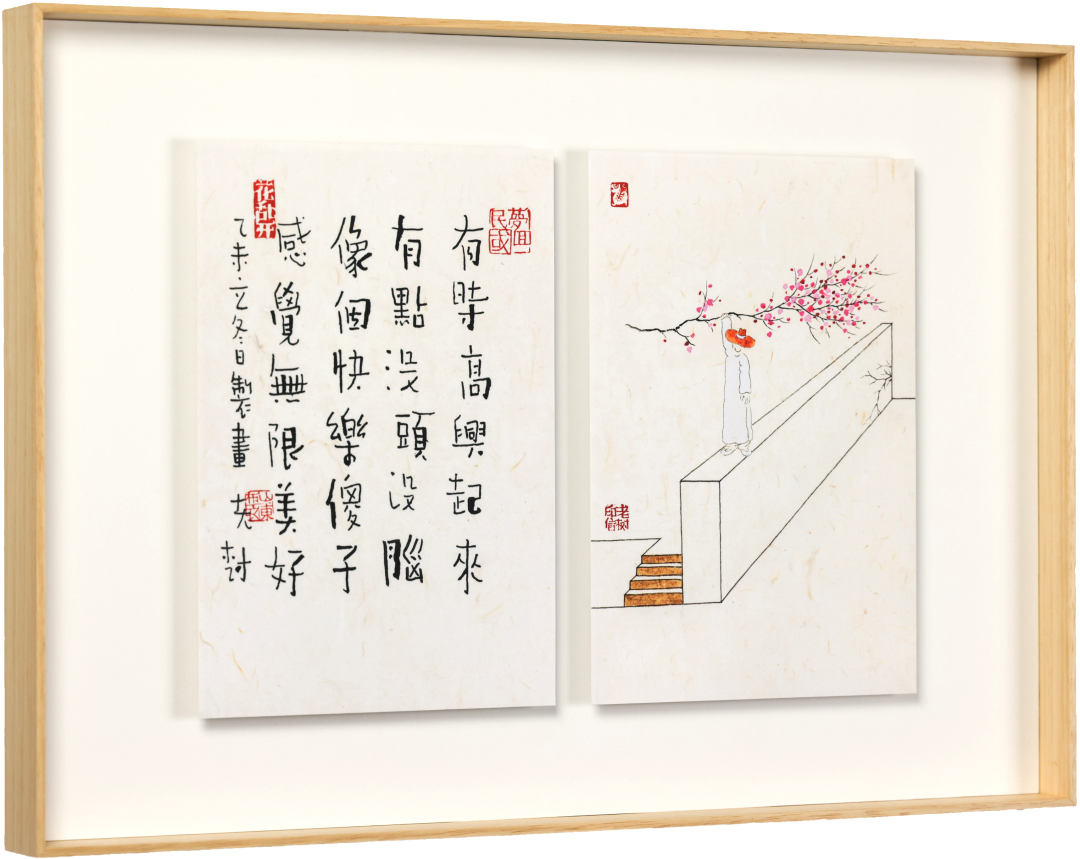 夢回民國
有時高興起來
有點没頭没腦
像個快樂傻子
感覺無限美好
花欲开
乙未·立冬日製畫
老树
山東
老树